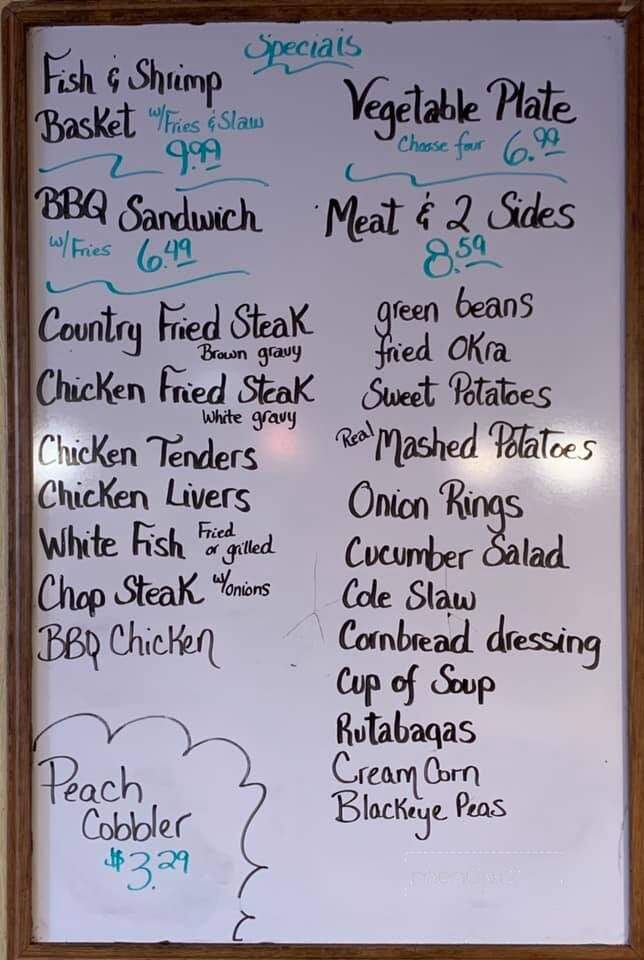 Specials
Fish & Shrimp
Basket w/Fries & Slaw
9.99
BBQ Sandwich
w/Fries 6.49
Country Fried Steak
Brown gravy
Chicken Fried Steak
White gravy
Chicken Tenders
Chicken Livers
White Fish Fried
or grilled
Chop Steak w/onions
BBQ Chicken
Peach
Cobbler
$3.29
Vegetable Plate
Choose four 6.99
Meat & 2 Sides
8.59
green beans
fried Okra
Sweet Potatoes
Real Mashed Potatoes
Onion Rings
Cucumber Salad
Cole Slaw
Cornbread dressing
Cup of Soup
Rutabagas
Cream Corn
Blackeye Peas